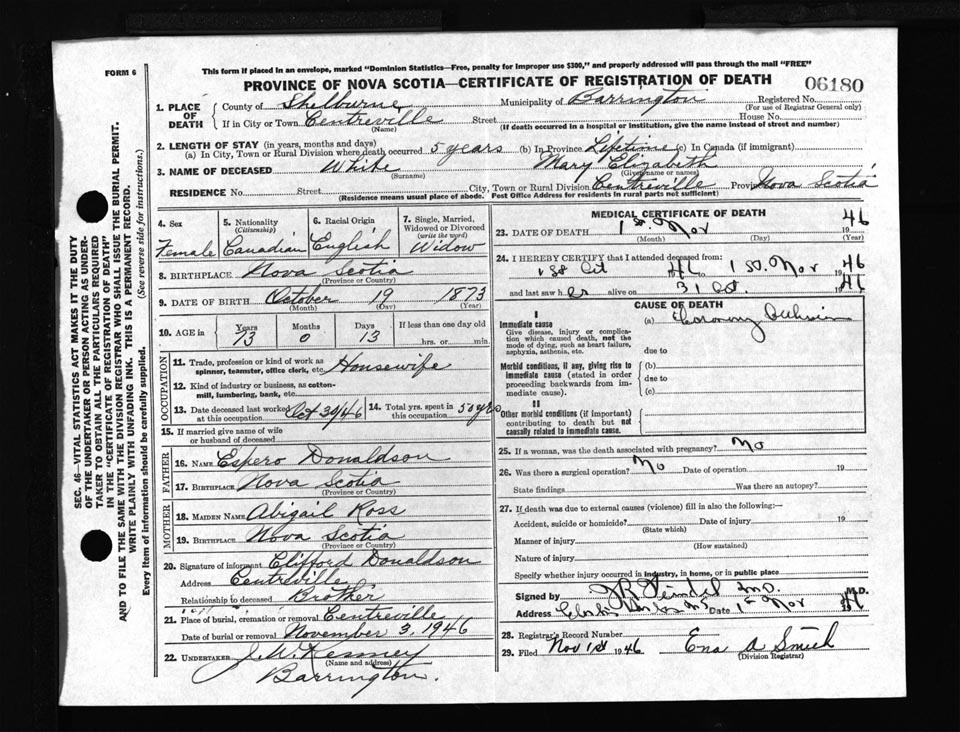 FORM 6
This form if placed in an envelope, marked "Dominion Statistics—Free, penalty for improper use $300," and properly addressed will pass through the mail "FREE"
PROVINCE OF NOVA SCOTIA—CERTIFICATE OF REGISTRATION OF DEATH
06180
1. PLACE OF DEATH
County of Shelburne Municipality of Barrington Registered No.
(For use of Registrar General only)
If in City or Town Centreville Street House No.
(Name) (If death occurred in a hospital or institution, give the name instead of street and number)
2. LENGTH OF STAY (in years, months and days)
(a) In City, Town or Rural Division where death occurred 5 years (b) In Province Lifetime (c) In Canada (if immigrant)
3. NAME OF DECEASED White Mary Elizabeth
(Surname) (Given name or names)
RESIDENCE No. Street City, Town or Rural Division Centreville Province Nova Scotia
(Residence means usual place of abode. Post Office Address for residents in rural parts not sufficient)
4. Sex
Female
5. Nationality
(Citizenship)
Canadian
6. Racial Origin
English
7. Single, Married, Widowed or Divorced
(write the word)
Widow
8. BIRTHPLACE Nova Scotia
(Province or Country)
9. DATE OF BIRTH October 19 1873
(Month) (Day) (Year)
10. AGE in Years Months Days If less than one day old
73 0 13 hrs. or min.
OCCUPATION
11. Trade, profession or kind of work as spinner, teamster, office clerk, etc. Housewife
12. Kind of industry or business, as cotton-mill, lumbering, bank, etc.
13. Date deceased last worked at this occupation Oct 30/46
14. Total yrs. spent in this occupation 50 yrs
15. If married give name of wife or husband of deceased
FATHER
16. NAME Espero Donaldson
17. BIRTHPLACE Nova Scotia
(Province or Country)
MOTHER
18. MAIDEN NAME Abigail Ross
19. BIRTHPLACE Nova Scotia
(Province or Country)
20. Signature of informant Clifford Donaldson
Address Centreville
Relationship to deceased Brother
21. Place of burial, cremation or removal Centreville
Date of burial or removal November 3, 1946
22. UNDERTAKER J. W. Kenney
(Name and address)
Barrington.
MEDICAL CERTIFICATE OF DEATH
23. DATE OF DEATH 1st. Nov 1946
(Month) (Day) (Year)
24. I HEREBY CERTIFY that I attended deceased from:
Oct 46 to 1st. Nov 1946
and last saw her alive on 31 Oct. 1946
CAUSE OF DEATH
I
Immediate cause
Give disease, injury or complication which caused death, not the mode of dying, such as heart failure, asphyxia, asthenia, etc.
(a) Coronary
due to
Morbid conditions, if any, giving rise to immediate cause (stated in order proceeding backwards from immediate cause).
(b)
due to
(c)
II
Other morbid conditions (if important) contributing to death but not causally related to immediate cause.
25. If a woman, was the death associated with pregnancy? No
26. Was there a surgical operation? No Date of operation 19
State findings Was there an autopsy?
27. If death was due to external causes (violence) fill in also the following:—
Accident, suicide or homicide? Date of injury 19
(State which)
Manner of injury
(How sustained)
Nature of injury
Specify whether injury occurred in industry, in home, or in public place
Signed by M.D.
Address Date 1st Nov 46
28. Registrar's Record Number
29. Filed Nov 1st 1946 Ena A Smith
(Division Registrar)
SEC. 46—VITAL STATISTICS ACT MAKES IT THE DUTY
OF THE UNDERTAKER OR PERSON ACTING AS UNDER-
TAKER TO OBTAIN ALL THE PARTICULARS REQUIRED
IN THE "CERTIFICATE OF REGISTRATION OF DEATH"
AND TO FILE THE SAME WITH THE DIVISION REGISTRAR WHO SHALL ISSUE THE BURIAL PERMIT.
WRITE PLAINLY WITH UNFADING INK. THIS IS A PERMANENT RECORD.
Every item of information should be carefully supplied. (See reverse side for instructions.)